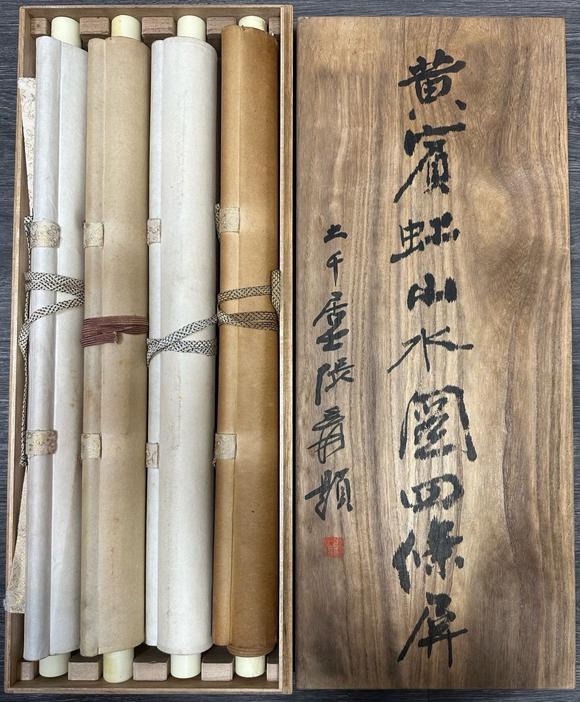 黄賓虹山水圖四條屏
大千居士張爰題